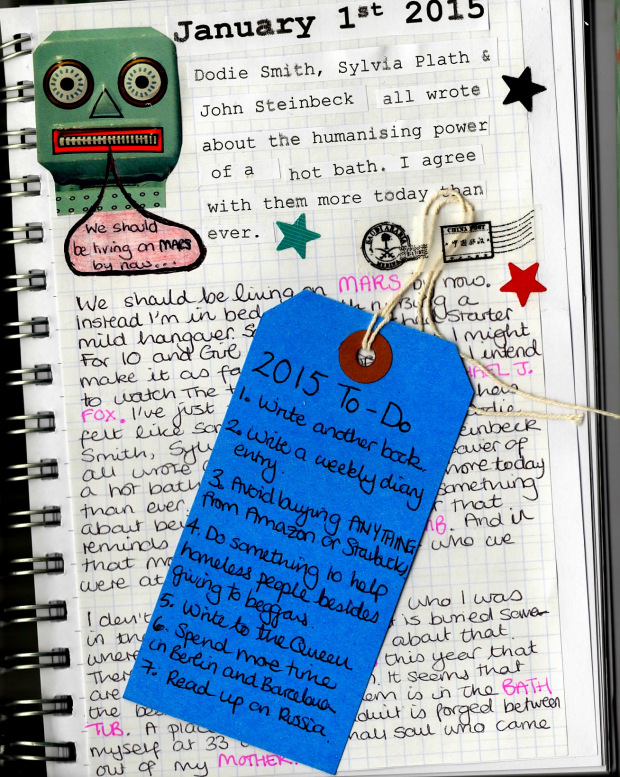 January 1st 2015
Dodie Smith, Sylvia Plath &
John Steinbeck all wrote
about the humanising power
of a hot bath. I agree
with them more today than
ever.
We should
be living on MARS
by now...
SAUDI ARABIA
MEDINA
CHINA POST
We should be living on MARS by now.
Instead I'm in bed a
mild hangover. S Starter
For 10 and Girl I might
make it as fa intend
to watch The t HAEL J.
FOX. I've just when
felt like som odie
Smith, Sylv einbeck
all wrote ower of
a hot bath more today
than ever. something
about bei that
reminds MB. And it
that mo who we
were at
I don't who I was
in th is buried
where about that.
Ther this year that
are It seems that
the be em is in the BATH
TUB. A plac duit is forged between
myself at 33 mall soul who came
out of my MOTHER.
2015 To-Do
1. Write another book.
2. Write a weekly diary
entry.
3. Avoid buying ANYTHING
from Amazon or Starbucks
4. Do something to help
homeless people besides
giving to beggars.
5. Write to the Queen
6. Spend more time
in Berlin and Barcelona
7. Read up on Russia.